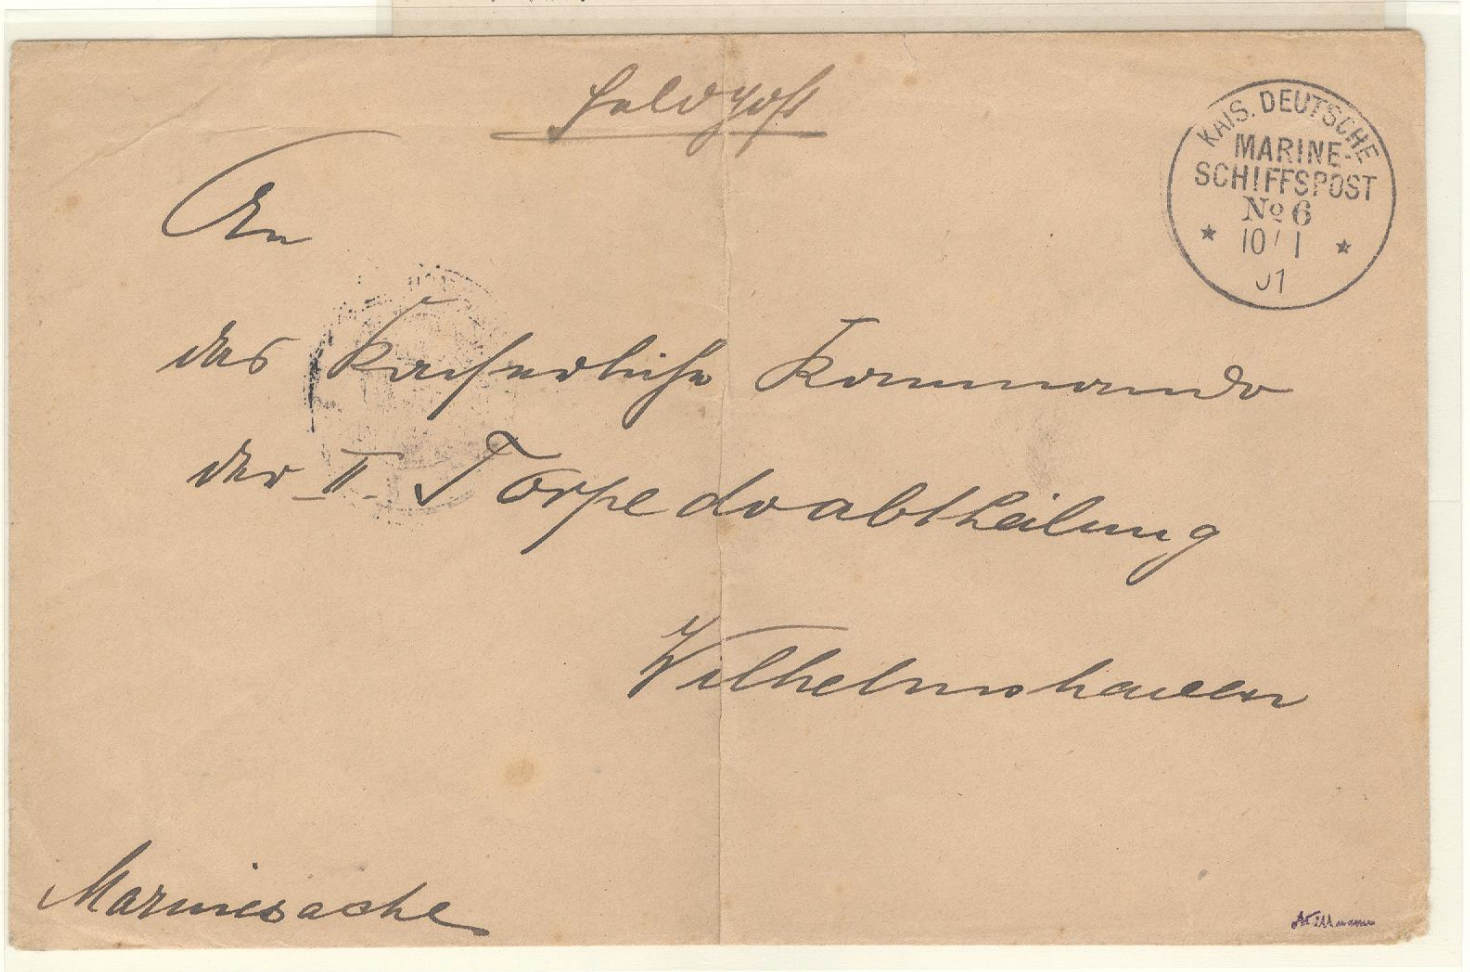 Feldpost
KAIS. DEUTSCHE
MARINE-
SCHIFFSPOST
No 6
10/1
01
An
das Kaiserliche Kommando
der II. Torpedoabtheilung
Wilhelmshaven
Marinesache